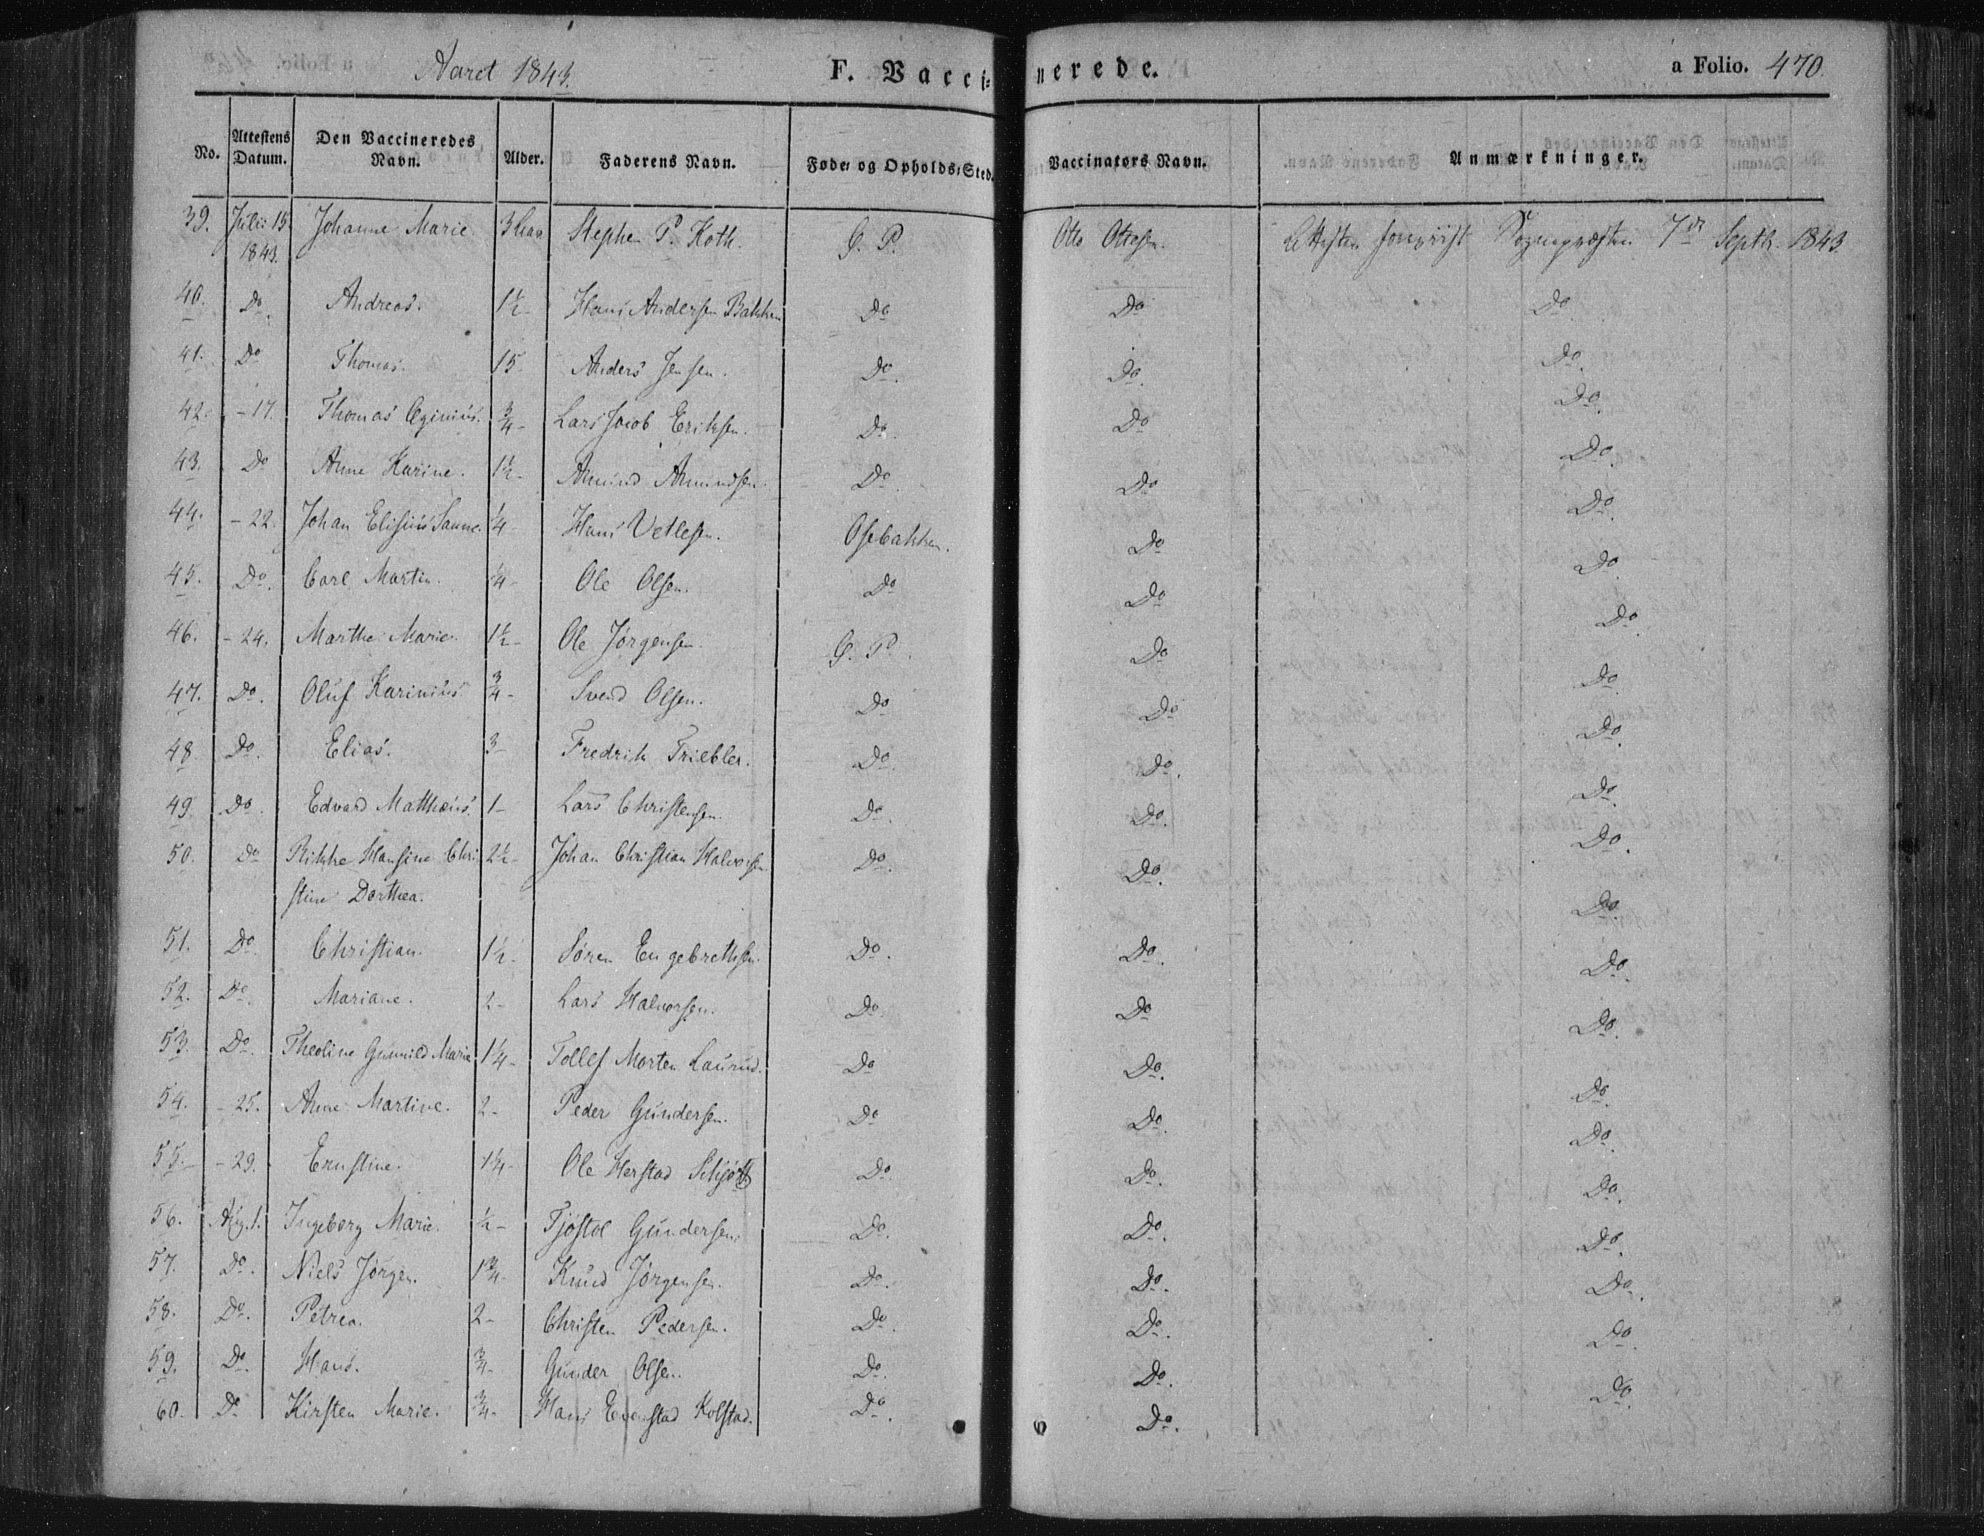 Aaret 1843.
F. Vacci=nerede.
a Folio. 470.
No. | Attestens Datum. | Den Vaccineredes Navn. | Alder. | Faderens Navn. | Føde= og Opholds=Sted. | Vaccinators Navn. | Anmærkninger.
39. | Juli 15. 1843. | Johanne Marie. | 3 | Stephen P. Koth. | G. P. | Otto Ottesen. | Attesten Sognepræsten 7de Septb. 1843.
40. | Do. | Andreas. | 1½- | Hans Andersen Bakken | Do | Do | Do.
41. | Do | Thomas. | 15. | Anders Jensen. | Do. | Do. | Do.
42. | -17. | Thomas Eginius. | ¾- | Lars Jacob Eriksen. | Do. | Do | Do.
43. | Do | Anne Karine. | 1½- | Amund Amundsen. | Do. | Do | Do.
44. | -22. | Johan Elisius Sanne. | ¼ | Hans Vetlesen. | Osebakken. | Do | Do.
45. | Do. | Carl Martin. | ¼- | Ole Olsen. | Do | Do | Do.
46. | -24. | Marthe Marie. | 1½- | Ole Jørgensen. | G. P. | Do | Do.
47. | Do. | Oluf Karinius | ¾- | Svend Olsen. | Do | Do | Do.
48 | Do. | Elias. | 3- | Fredrik Triebler. | Do. | Do. | Do.
49. | Do. | Edvard Matthæus. | 1- | Lars Christensen. | Do. | Do. | Do.
50. | Do | Rikke Hansine Chri | 2½- | Johan Christian Halvorsen | Do. | Do. | Do.
stine Dorthea.
51. | Do | Christian. | 1½- | Søren Engebrethsen. | Do. | Do. | Do.
52. | Do. | Mariane. | 2- | Lars Halvorsen. | Do. | Do | Do.
53. | Do. | Theoline Gunnild Marie | 1¼- | Tollef Morten Laurud. | Do | Do. | Do.
54. | -25. | Anne Martine. | 2- | Peder Gundersen. | Do | Do. | Do.
55. | -29. | Ernstine. | 1¼- | Ole Herstad Schjøtt | Do. | Do. | Do.
56. | Aug. 1. | Ingeborg Marie. | ½- | Tjøstol Gundersen. | Do. | Do. | Do.
57. | Do. | Niels Jørgen. | 1¾- | Knud Jørgensen. | Do. | Do. | Do.
58. | Do. | Petrea. | 2- | Christen Pedersen. | Do. | Do. | Do.
59. | Do. | Hans. | ¾- | Gunder Olsen. | Do. | Do. | Do.
60. | Do | Kirsten Marie. | ¾- | Hans Evenstad Kolstad. | Do. | Do.